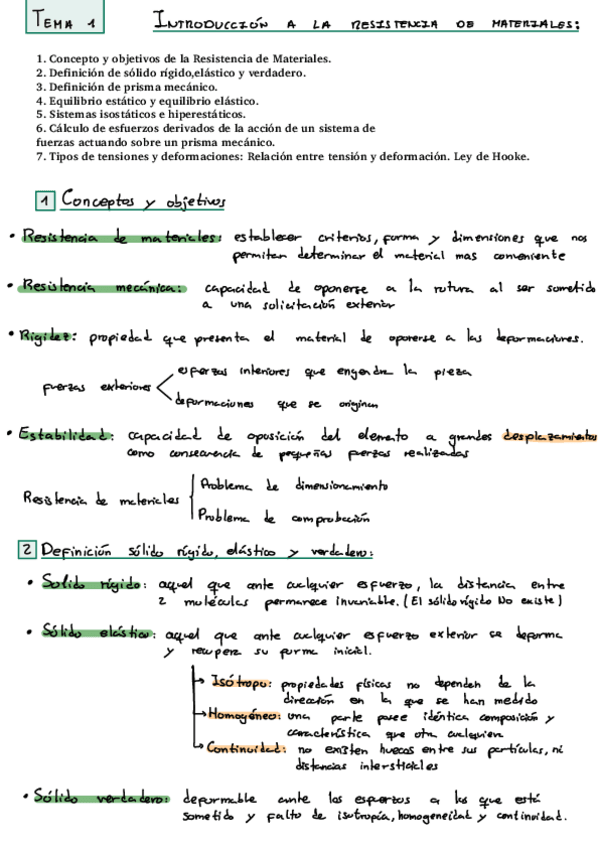 TEMA 1
INTRODUCCIÓN A LA RESISTENCIA DE MATERIALES:
1. Concepto y objetivos de la Resistencia de Materiales.
2. Definición de sólido rígido,elástico y verdadero.
3. Definición de prisma mecánico.
4. Equilibrio estático y equilibrio elástico.
5. Sistemas isostáticos e hiperestáticos.
6. Cálculo de esfuerzos derivados de la acción de un sistema de
fuerzas actuando sobre un prisma mecánico.
7. Tipos de tensiones y deformaciones: Relación entre tensión y deformación. Ley de Hooke.
1 Conceptos y objetivos
• Resistencia de materiales: establecer criterios, forma y dimensiones que nos
permitan determinar el material mas conveniente
• Resistencia mecánica: capacidad de oponerse a la rotura al ser sometido
a una solicitación exterior
• Rigidez: propiedad que presenta el material de oponerse a las deformaciones.
fuerzas exteriores
esfuerzos interiores que engendra la pieza
deformaciones que se originan
• Estabilidad: capacidad de oposición del elemento a grandes desplazamientos
como consecuencia de pequeñas fuerzas realizadas
Resistencia de materiales
Problema de dimensionamiento
Problema de comprobación
2 Definición sólido rígido, elástico y verdadero:
• Solido rígido: aquel que ante cualquier esfuerzo, la distancia entre
2 moléculas permanece invariable. (El sólido rígido No existe)
• Sólido elástico: aquel que ante cualquier esfuerzo exterior se deforma
y recupera su forma inicial.
Isótropo: propiedades físicas no dependen de la
dirección en la que se han medido
Homogéneo: una parte posee idéntica composición y
característica que otra cualquiera
Continuidad: no existen huecos entre sus partículas, ni
distancias intersticiales
• Sólido verdadero: deformable ante los esfuerzos a los que está
sometido y falto de isotropía, homogeneidad y continuidad.